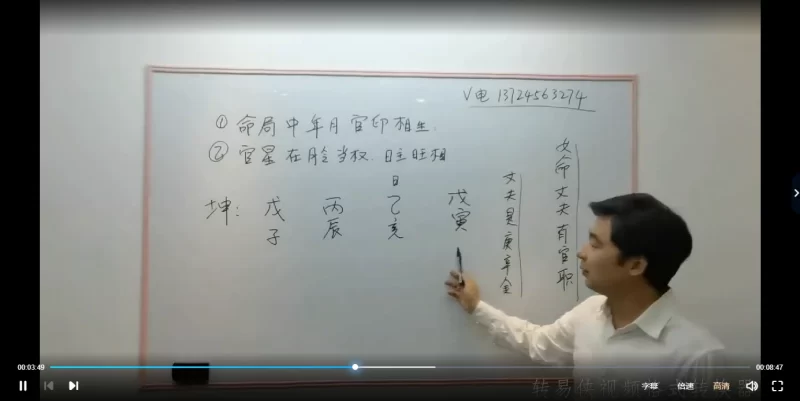 V电 13724563274
①命局中年月官印相生.
②官星在脸当权.日主旺相
女命丈夫有官职
丈夫是庚辛金
日
坤: 戊 丙 乙 戊
子 辰 亥 寅
00:03:49
00:08:47
字幕 倍速 高清
转易侠视频格式转换器